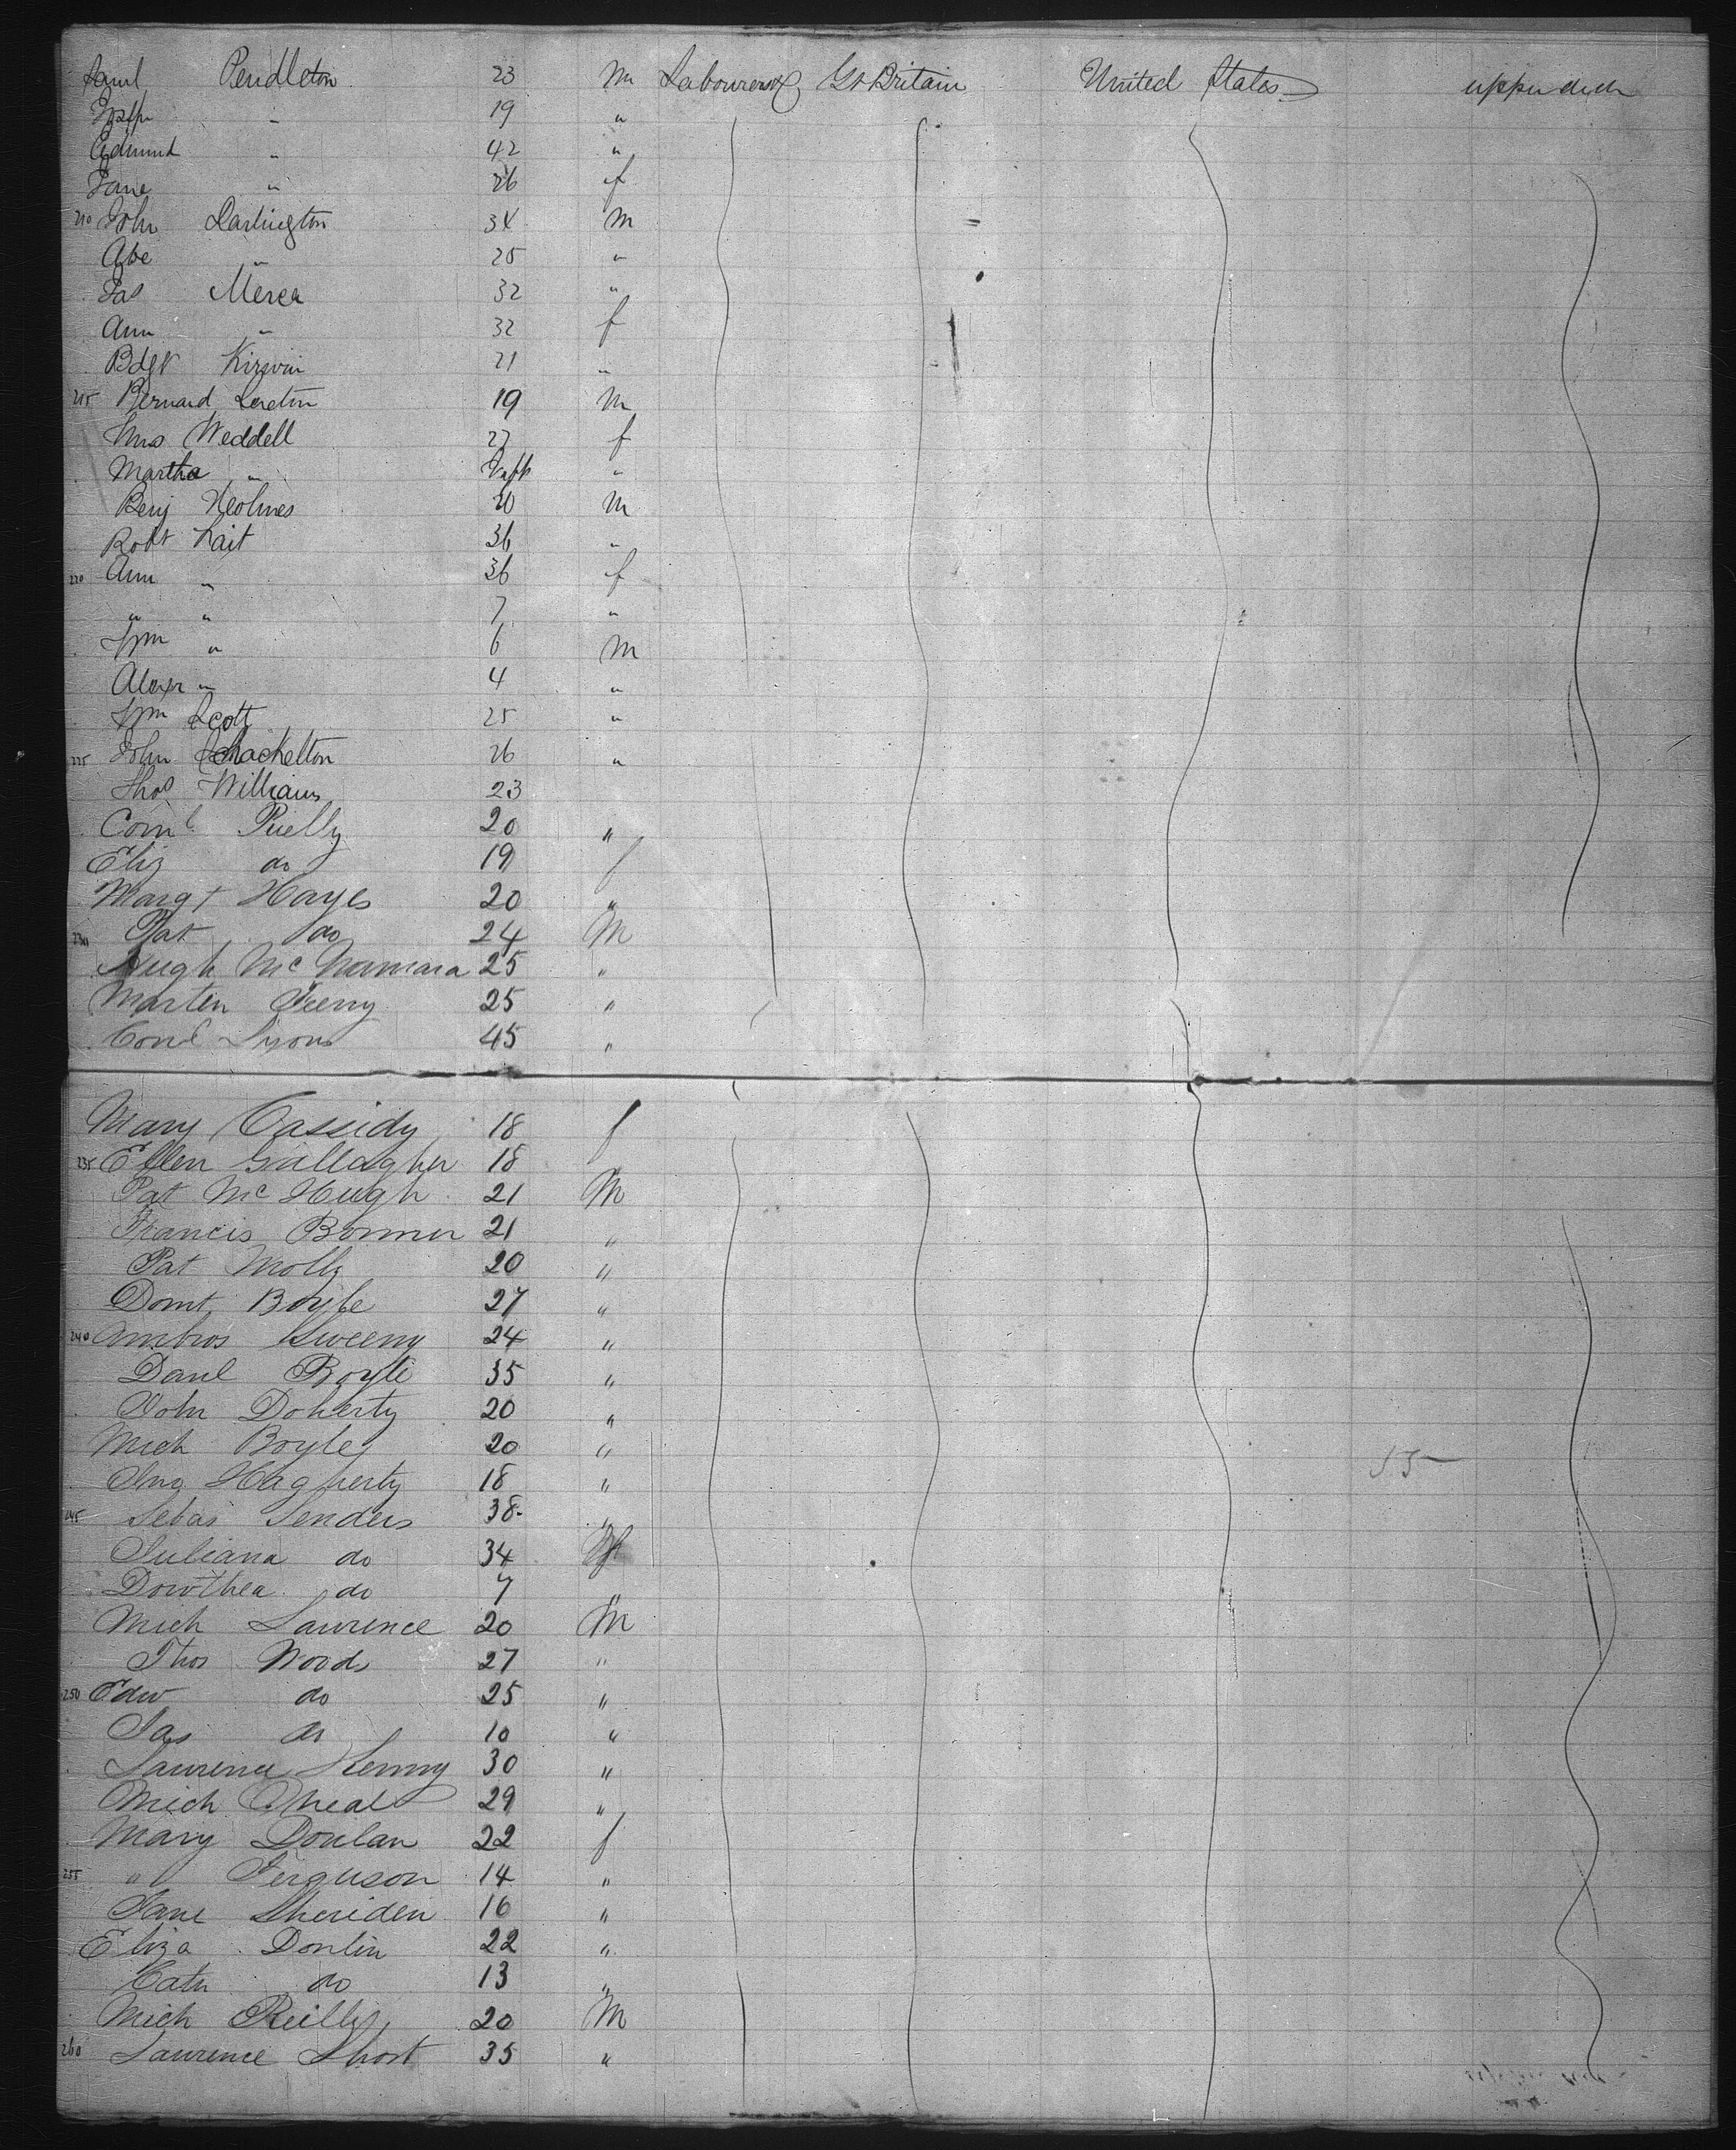 Saml Pendleton 23 M Labourers Gt Britain United States upper deck
" 19 "
Edmund " 42 "
Jane " 26 f
210 John Darlington 34 M
Abe " 25 "
Jas Merca 32 "
Ann " 32 f
Bdgt Kirwin 21 "
215 Bernard 19 M
Mrs Weddell 27 f
Martha " "
Benj Holmes 20 M
Robt Tait 36 "
220 Ann " 36 f
" " 7 "
Wm " 6 M
Alexr " 4 "
Wm Scott 25 "
225 John Schackelton 26 "
Thos Williams 23
Cornl Rielly 20 "
Eliz do 19 f
Margt Hayes 20 "
230 Pat do 24 M
Hugh McNamara 25 "
Marten 25 "
Cornl Lyons 45 "
Mary Cassidy 18 f
235 Ellen Gallagher 18 "
Pat McHugh 21 M
Francis Bonner 21 "
Pat Molly 20 "
Domt Boyle 27 "
240 Ambros Sweeny 24 "
Danl Boyle 35 "
John Doherty 20 "
Mich Boyle 20 "
Jno Hagherty 18 "
55
245 Sebas Senders 38 "
Juliana do 34 f
Dorothea do 7 "
Mich Lawrence 20 M
Thos Woods 27 "
250 Edw do 25 "
Jas do 10 "
Lawrence Kenny 30 "
Mich Oneal 29 "
Mary Donlan 22 f
255 " Ferguson 14 "
Jane Sheriden 16 "
Eliza Donlin 22 "
Cath do 13 "
Mich Reilly 20 M
260 Lawrence Short 35 "